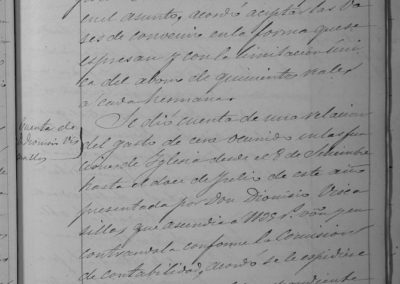 en el asunto, acordó aceptar las ba
ses de convenio en la forma que se
espresan y con la limitacion úni
ca del abono de quinientos reales
a cada hermana.
Se dió cuenta de una relacion
del gasto de cera ocurrido en las fun
ciones de Iglesia desde el 8 de Setiembre
hasta el doce de Julio de este año
presentada por Don Dionisio
sillas que asciende a 1125 r.s von y en
contrandola conforme la Comision
de contabilidad, acordó se le espidiese
Cuenta de